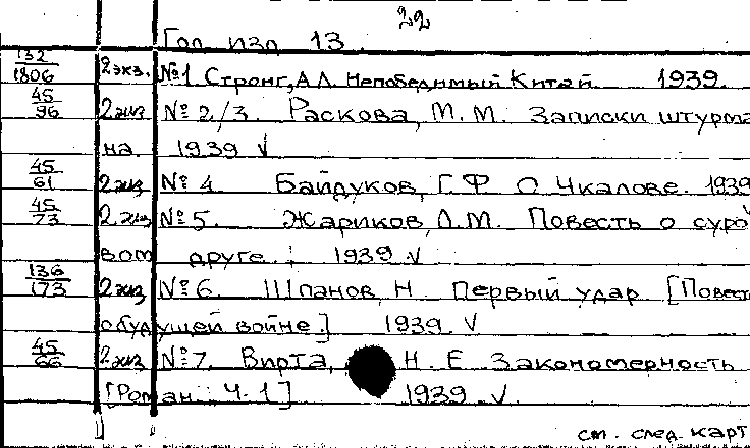 22
Год изд. 13
132/1806 2 экз. №1 Стронг, А.Л. Непобедимый Китай 1939.
45/96 2 экз №2/3. Раскова, М.М. Записки штурма
на 1939 V
45/61 2 экз №4 Байдуков, Г.Ф О Чкалове. 1939
45/73 2 экз №5. Жариков, Л.М. Повесть о суро
вом друге. 1939 V
136/173 2 экз №6. Шпанов, Н. Первый удар [Повест
о будущей войне.] 1939. V
45/66 2 экз №7. Вирта, Н.Е. Закономерность
[Роман Ч.1] 1939. V.
см. след. карт